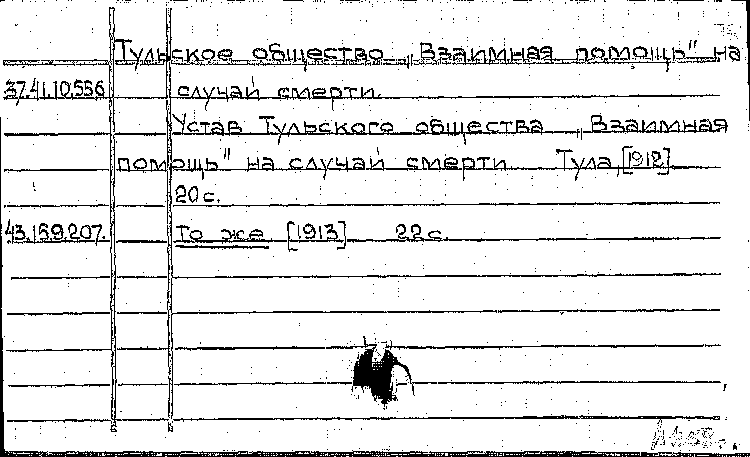 Тульское общество „Взаимная помощь" на
37.41.10.536 случай смерти.
Устав Тульского общества „Взаимная
помощь" на случай смерти Тула, [1912]
20 с.
43.159.207. То же [1913] 22 с.